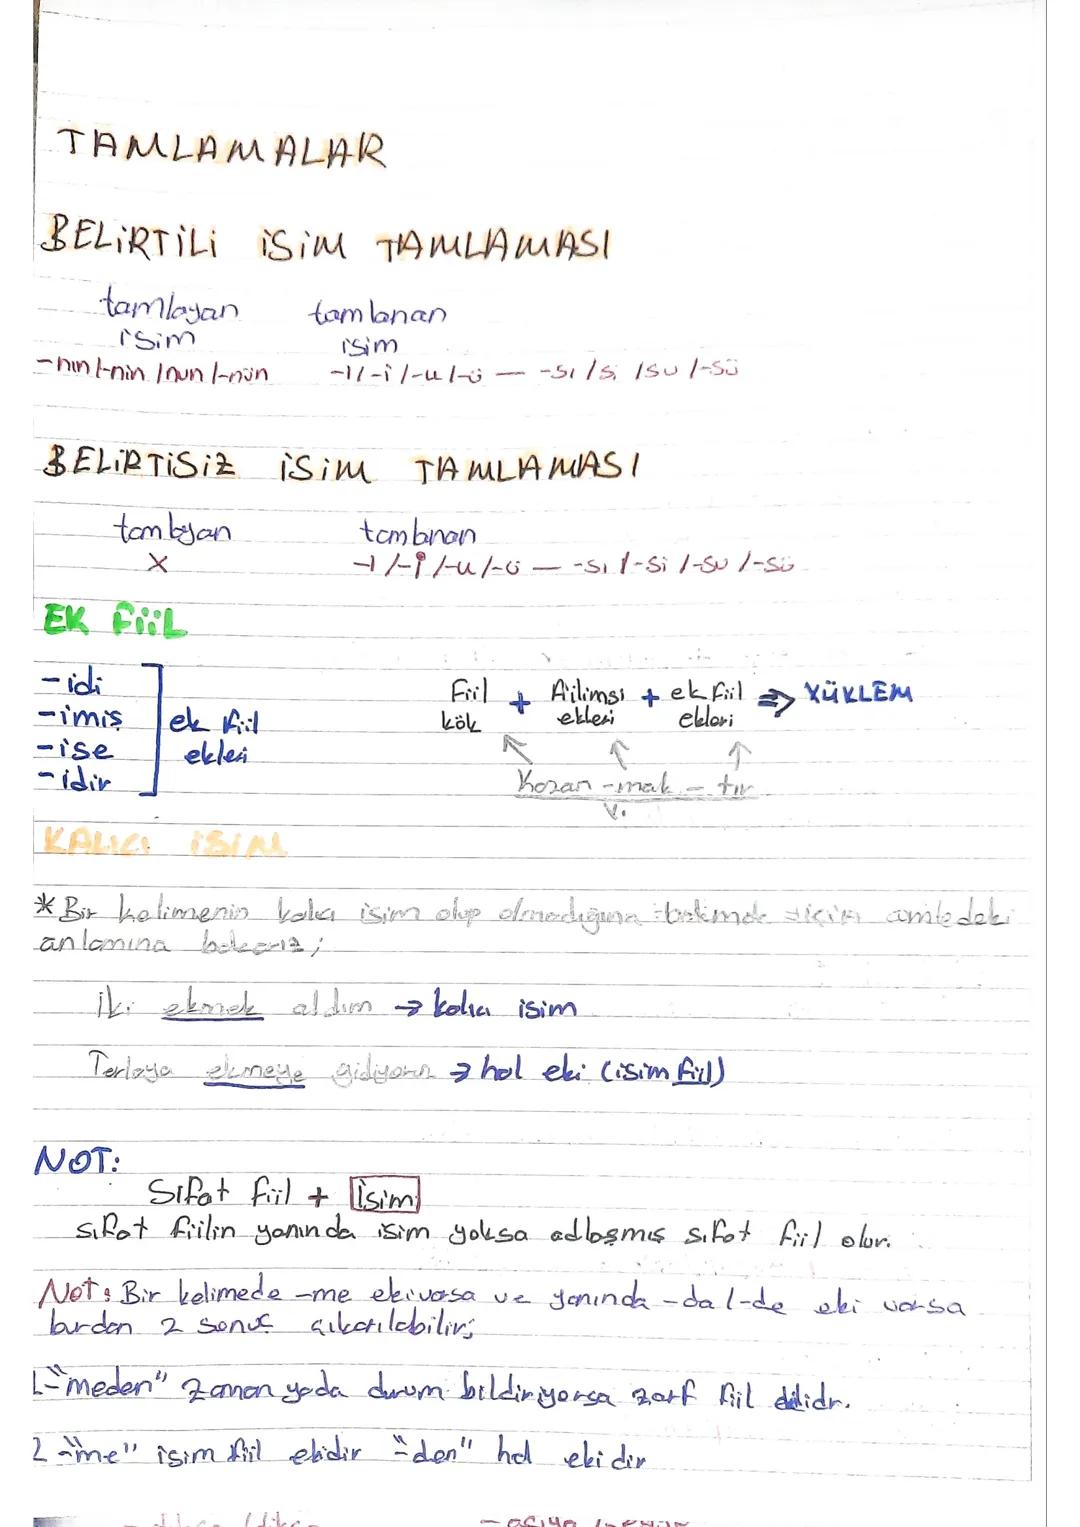 TAMLAMALAR
BELİRTİLİ İSİM TAMLAMASI
tamlayan tamlanan
isim isim
-nın/-nin/nun/-nün -ı/-i/-u/-ü — -sı/si/su/-sü
BELİRTİSİZ İSİM TAMLAMASI
tamlayan tamlanan
X -ı/-i/-u/-ü — -sı/-si/-su/-sü
EK FİİL
-idi
-imiş
-ise
-idir
ek fiil
ekleri
Fiil + Fiilimsi + ek fiil ⇒ YÜKLEM
kök ekleri ekleri
Kazan -mak - tır
Y.
KALICI İSİM
* Bir kelimenin kalıcı isim olup olmadığına için cümledeki
anlamına bakarız;
İki ekmek aldım → kalıcı isim
Tarlaya ekmeye gidiyorum → hal eki (isim fiil)
NOT:
Sıfat fiil + İsim
sıfat fiilin yanında isim yoksa adlaşmış sıfat fiil olur.
Not: Bir kelimede -me eki varsa ve yanında -da/-de eki varsa
burdan 2 sonuç çıkarılabilir;
1-"meden" zaman yada durum bildiriyorsa zarf fiil
2-"me" isim fiil ekidir "-den" hal ekidir